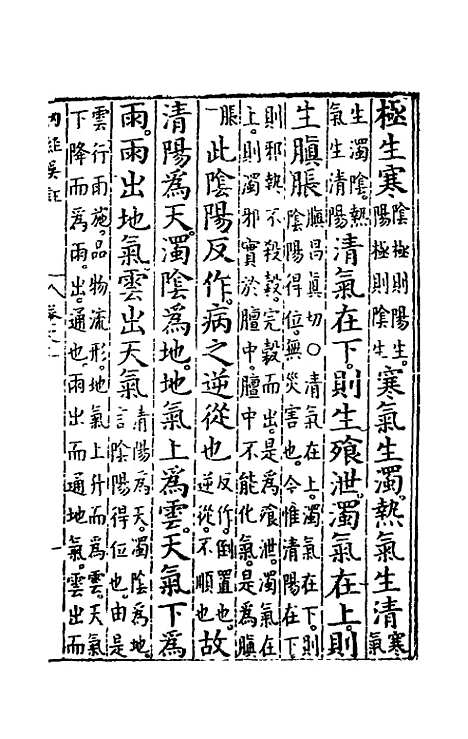 極生寒陰極則陽生。陽極則陰生。寒氣生濁。熱氣生清寒氣
生濁陰。熱氣生清陽清氣在下。則生飧泄。濁氣在上。則
生䐜脹䐜昌眞切○清氣在上。濁氣在下。則陰陽得位。無災害也。今惟清陽在下
則邪熱不殺穀。完穀而出。是爲飧泄。濁氣在上。則濁邪實於膻中。膻中不能化氣。是爲䐜
脹此陰陽反作。病之逆從也反作。倒置也。逆從。不順也故
清陽爲天。濁陰爲地。地氣上爲雲。天氣下爲
雨。雨出地氣雲出天氣清陽爲天。濁陰爲地。言陰陽得位也。由是
雲行雨施。品物流形。地氣上升而爲雲。天氣下降而爲雨。出。通也。雨出而通地氣。雲出而
內經吳註